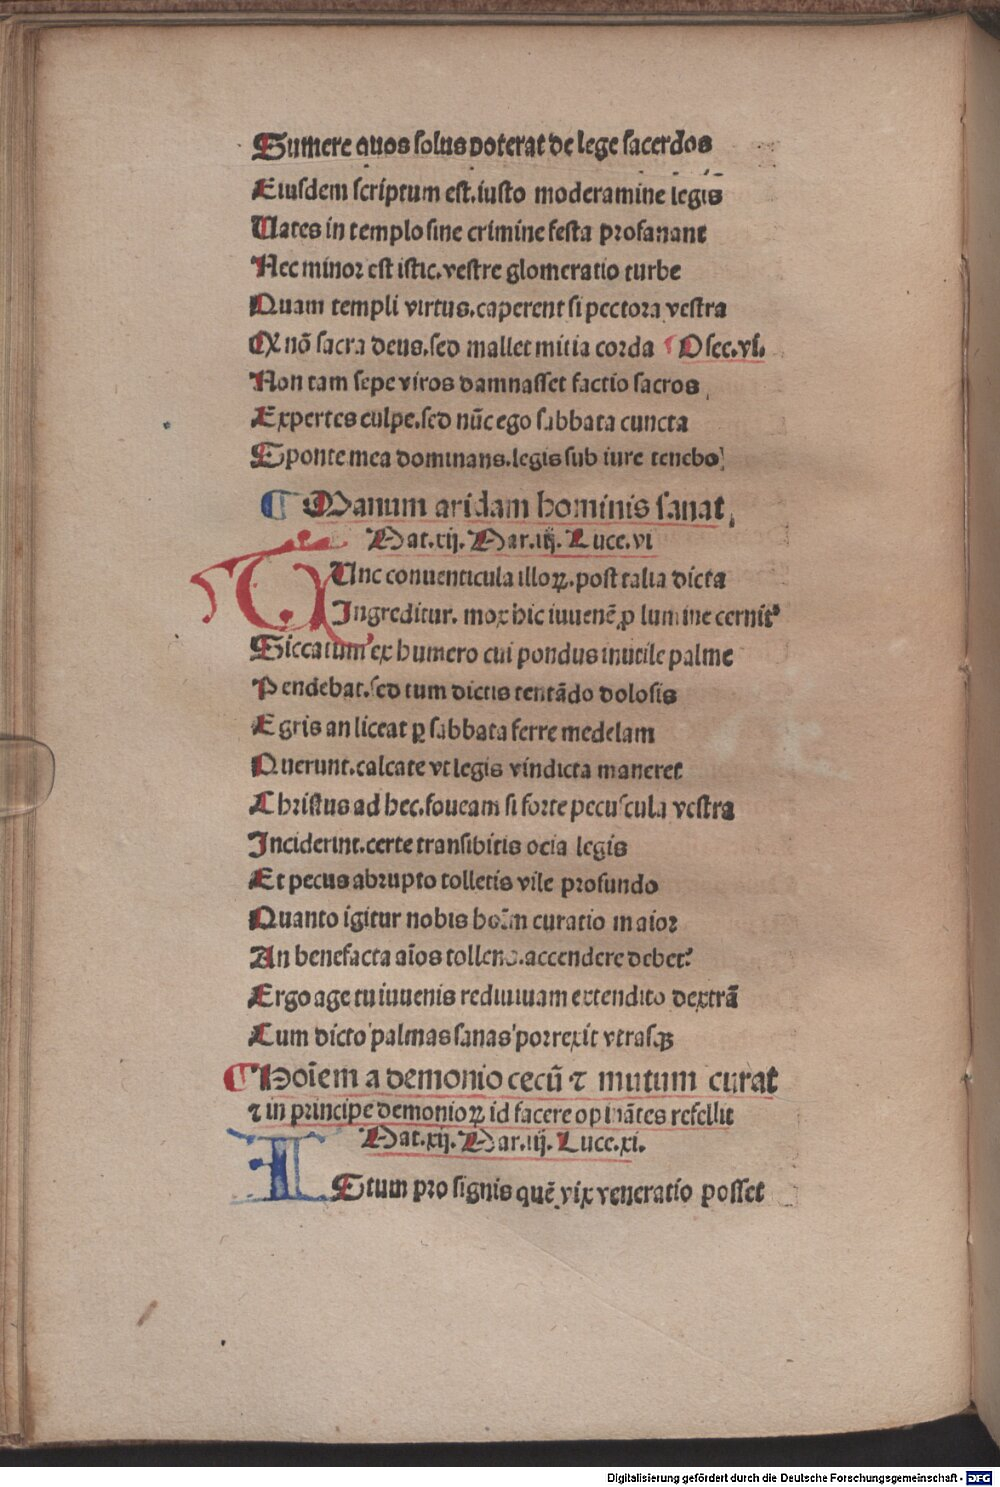 Sumere quos solus poterat de lege sacerdos
Eiusdem scriptum est.iusto moderamine legis
Uates in templo sine crimine festa profanant
Nec minor est istic.vestre glomeratio turbe
Quam templi virtus.caperent si pectora vestra
Qꝛ nō sacra deus.sed mallet mitia corda ¶ Osee.vi.
Non tam sepe viros damnasset factio sacros
Expertes culpe.sed nūc ego sabbata cuncta
Sponte mea dominans.legis sub iure tenebo
¶ Manum aridam hominis sanat.
Mat.xij. Mar.iij. Luce.vi
TUnc conuenticula illoꝝ.post talia dicta
Ingreditur. mox hic iuuenē ꝓ lumine cernitᵉ
Siccatum ex humero cui pondus inutile palme
Pendebat.sed tum dictis tentādo dolosis
Egris an liceat ꝑ sabbata ferre medelam
Querunt.calcate vt legis vindicta maneret
Christus ad hec.foueam si forte pecuscula vestra
Inciderint.certe transibitis ocia legis
Et pecus abrupto tolletis vile profundo
Quanto igitur nobis hoīm curatio maior
An benefacta aīos tollere.accendere debet?
Ergo age tu iuuenis rediuiuam extendito dextrā
Cum dicto palmas sanas porrexit vtrasqꝫ
¶ Hoīem a demonio cecū ⁊ mutum curat
⁊ in principe demonioꝝ id facere opināntes refellit
Mat.xij. Mar.iij. Luce.xi.
ESt tum pro signis quē vix veneratio posset
Digitalisierung gefördert durch die Deutsche Forschungsgemeinschaft - DFG